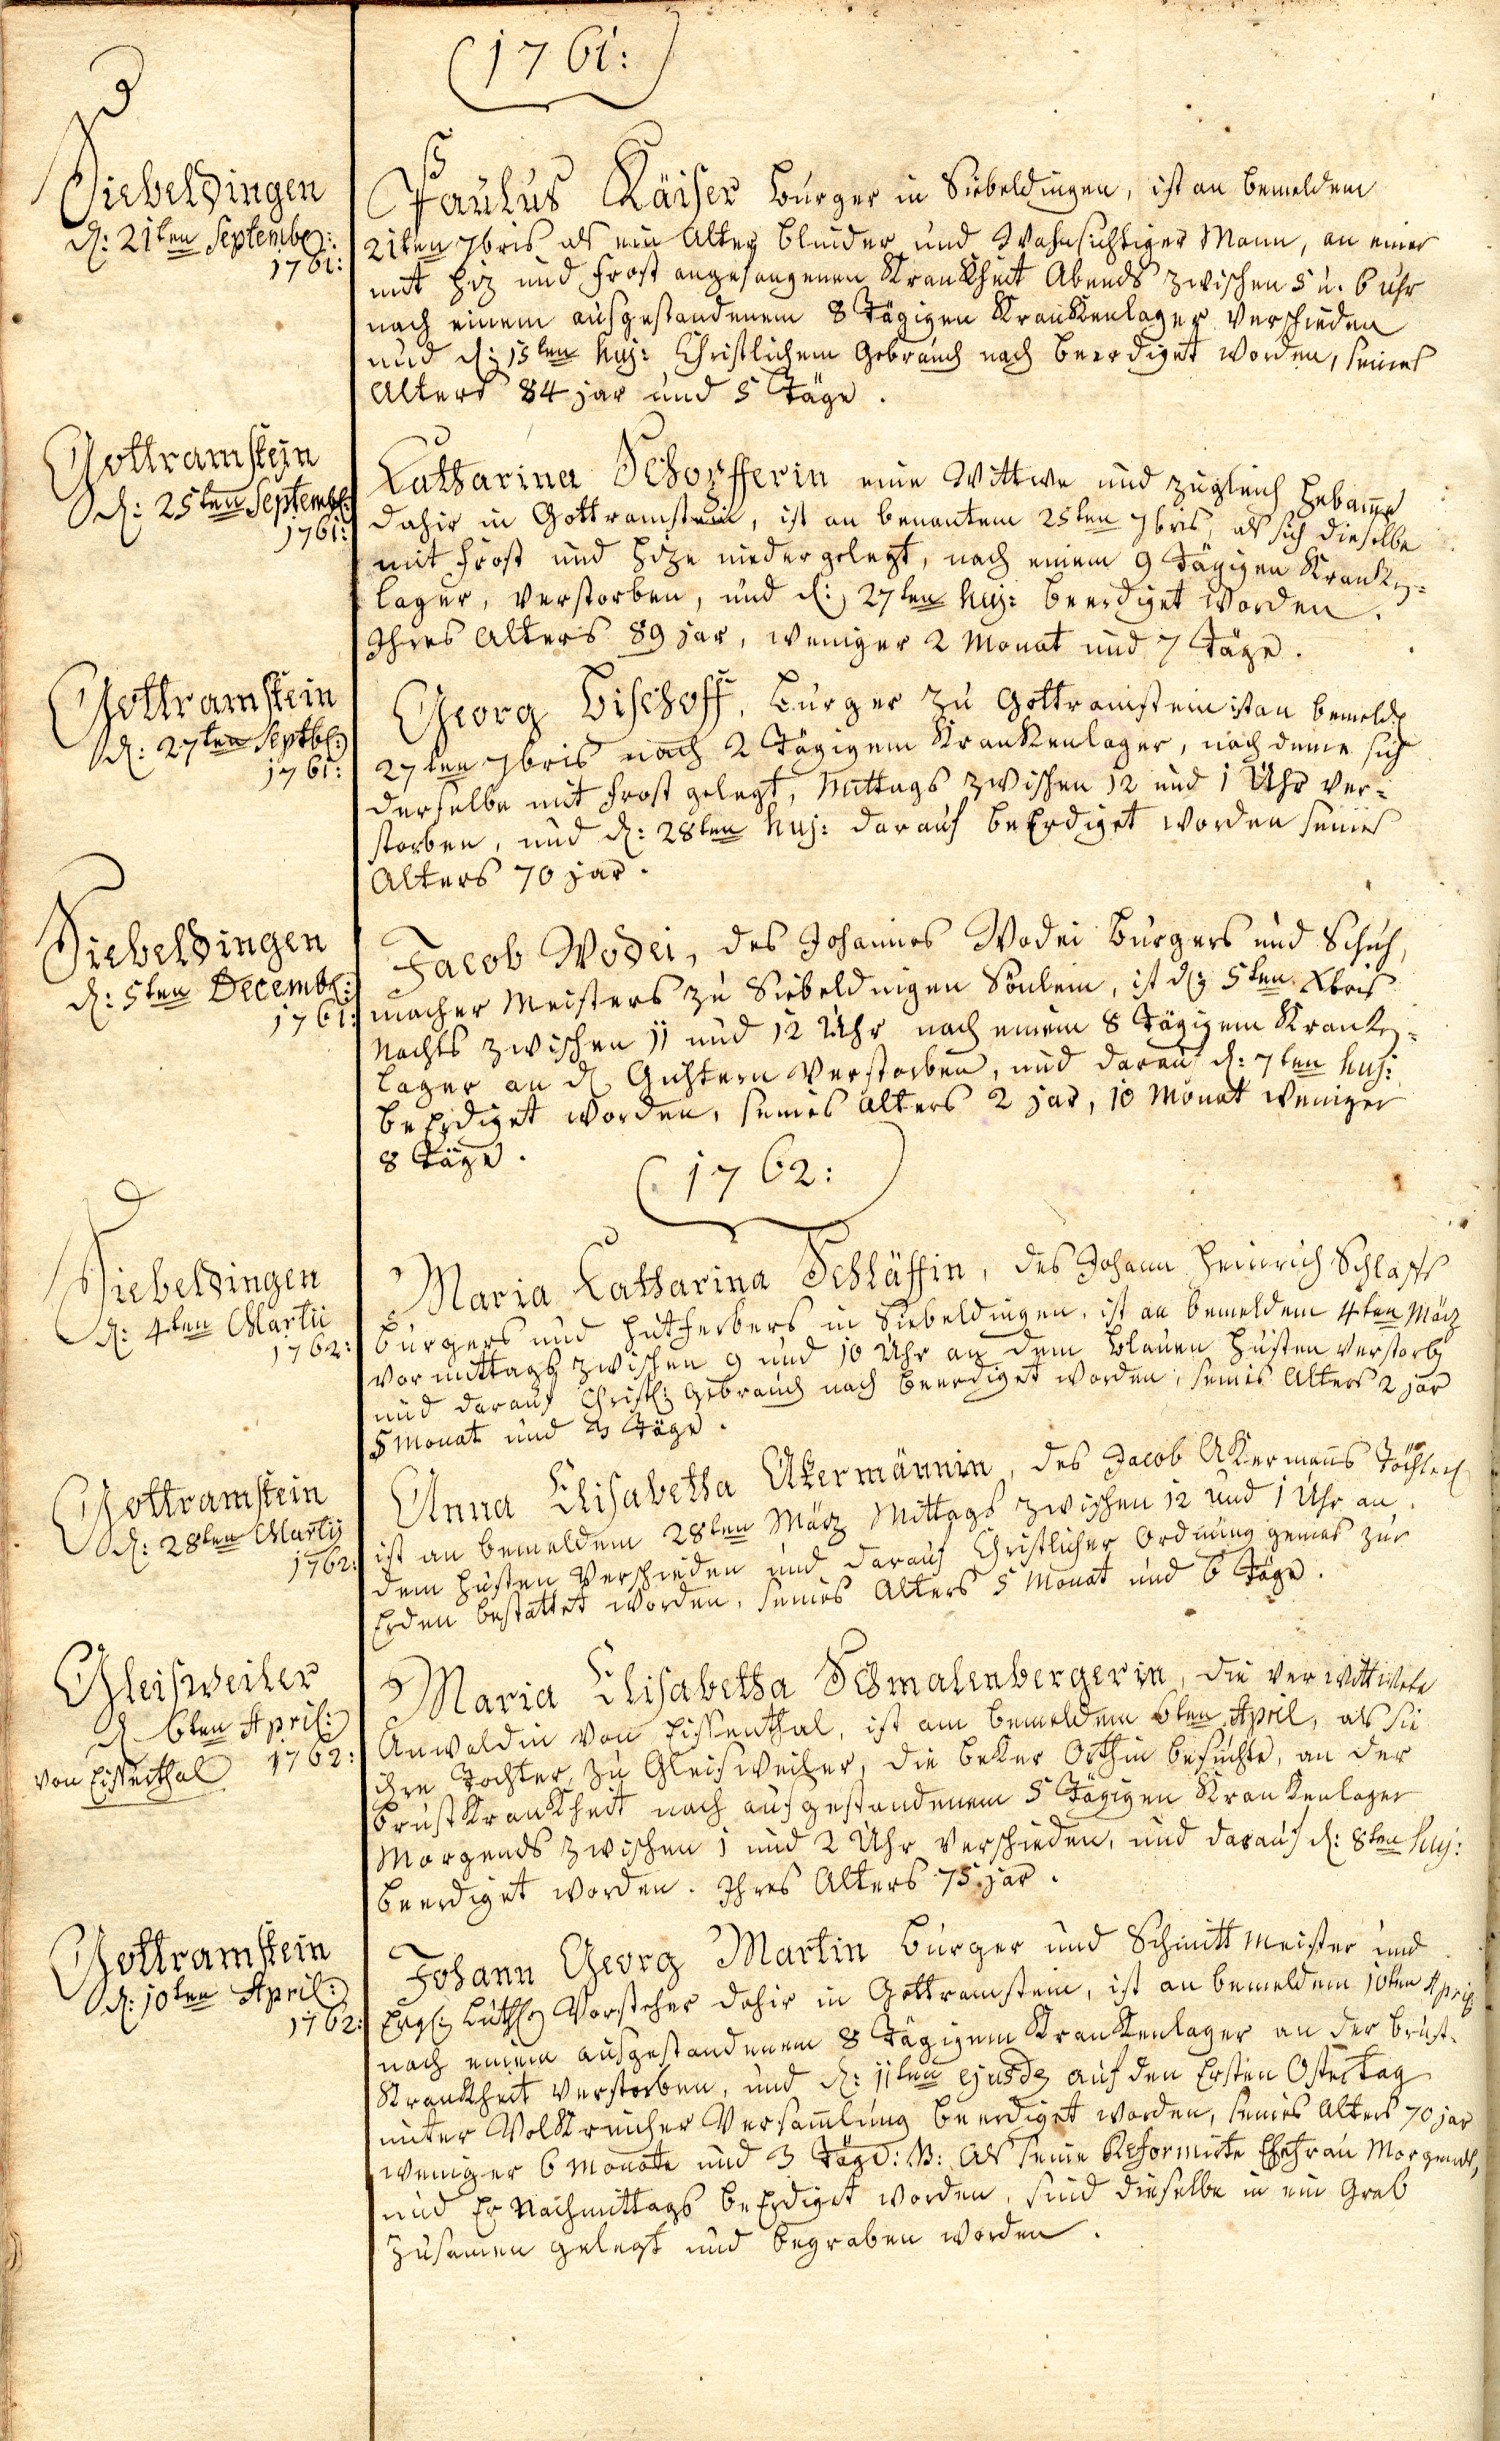 1761:
Siebeldingen
d: 21ten Septembr:
1761:
Paulus Käiser Burger in Siebeldingen, ist an bemeldem
21ten 7bris als ein Alter blinder und Wahnsichtiger Mann, an einer
mit Hiz und Frost angefangenen Kranckheit Abends zwischen 5 u. 6 Uhr
nach einem ausgestandenem 8 Tägigen Kranckenlager verschieden
und d: 15ten huj: Christlichem Gebrauch nach beerdiget worden, seines
Alters 84 jar und 5 Täge.
Gottramstein
d: 25ten Septembr:
1761:
Catharina Schopfferin eine Wittwe und zugleich Hebamme
dahir in Gottramstein, ist an benantem 25ten 7bris, als sich dieselbe
mit Frost und Hize niedergelegt, nach einem 9 Tägigen Krancken=
lager, verstorben, und d: 27ten huj: beerdiget worden.
Ihres Alters 89 jar, weniger 2 Monat und 7 Täge.
Gottramstein
d: 27ten Septbr:
1761:
Georg Bischoff, Burger zu Gottramstein ist an bemeldem
27ten 7bris nach 2 Tägigem Kranckenlager, nach deme sich
derselbe mit Frost gelegt, Mittags zwischen 12 und 1 Uhr ver=
storben, und d: 28ten huj: darauf beErdiget worden seines
Alters 70 jar.
Siebeldingen
d: 5ten Decembr:
1761:
Jacob Wodei, des Johannes Wodei Burgers und Schuh,
macher Meisters zu Siebeldingen Sönlein, ist d: 5ten Xbris
Nachts zwischen 11 und 12 Uhr nach einem 8 Tägigem Krancken=
lager an d Gichtern verstorben, und darauf d: 7ten huj:
beErdiget worden, seines Alters 2 jar, 10 Monat weniger
8 Täge.
1762:
Siebeldingen
d: 4ten Martii
1762:
Maria Catharina Schläffin, des Johann Heinrich Schlaffs
Burgers und Hutferbers in Siebeldingen, ist an bemeldem 4ten März
vormittags zwischen 9 und 10 Uhr an dem blauen Husten verstorben
und darauf Christl: Gebrauch nach beerdiget worden, seines Alters 2 jar
5 Monat und 3 Täge.
Gottramstein
d: 28ten Martij
1762:
Anna Elisabetha Akermännin, des Jacob Akermanns Töchterl
ist an bemeldem 28ten März Mittags zwischen 12 und 1 Uhr an
dem Husten verschieden und darauf Christlicher Ordnung gemes zur
Erden bestattet worden, seines Alters 5 Monat und 6 Täge.
Gleisweiler
d 6ten April:
1762:
von Eisserthal
Maria Elisabetha Schmalenbergerin, die verwittibete
Anwaldin von Eissenthal, ist am bemeldem 6ten April, als sie
ihre Tochter, zu Gleisweiler, die beker Orthin besuchte, an der
brustkranckheit nach ausgestandenem 5 Tägigen Kranckenlager
Morgends zwischen 1 und 2 Uhr verschieden, und darauf d: 8ten huj:
beerdiget worden. Ihres Alters 75 jar.
Gottramstein
d: 10ten April:
1762:
Johann Georg Martin Burger und Schnittmeister und
Evgl: Luthr Vorsteher dahir in Gottramstein, ist an bemeldem 10ten April
nach einem ausgestandenem 8 Tägigem Kranckenlager an der Brust-
Kranckheit verstorben, und d: 11ten ejusd auf den Ersten Ostertag
unter Volckreicher Versamlung beerdiget worden, seines Alters 70 jar
weniger 6 Monate und 3 Täge: NB: als seine Reformirte Ehefrau Morgends,
und Er Nachmittags beErdiget worden, sind dieselbe in ein Grab
zusamen gelegt und begraben worden.